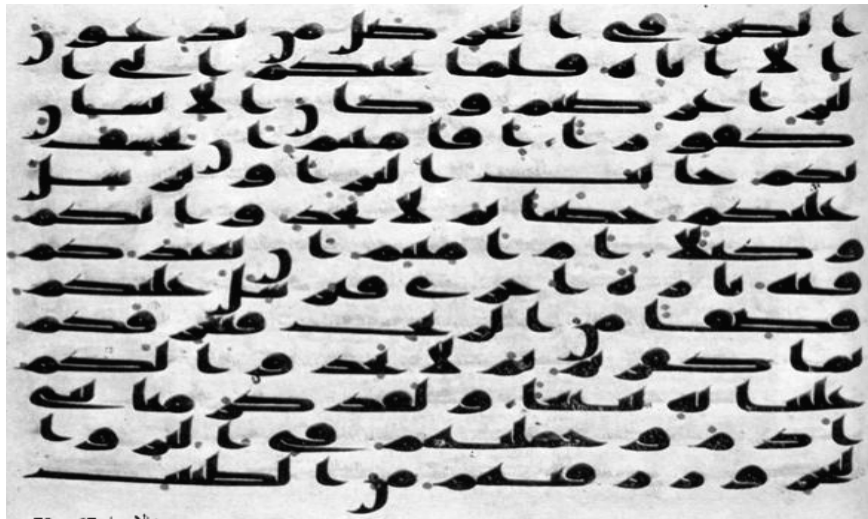 الضر في البحر ضل من تدعون
الا اياه فلما نجيكم الى ا
لبر اعرضتم وكان الانسان
كفورا افامنتم ان يخسف
بكم جانب البر او يرسل
عليكم حصبا ثم لا تجدوا لكم
وكيلا ام امنتم ان يعيدكم
فيه تارة اخرى فيرسل عليكم
قصفا من الريح فيغرقكم
بما كفرتم ثم لا تجدوا لكم
علينا به تبيعا ولقد كرمنا بني
ادم وحملنهم في البر وا
لبحر ورزقنهم من الطيبت